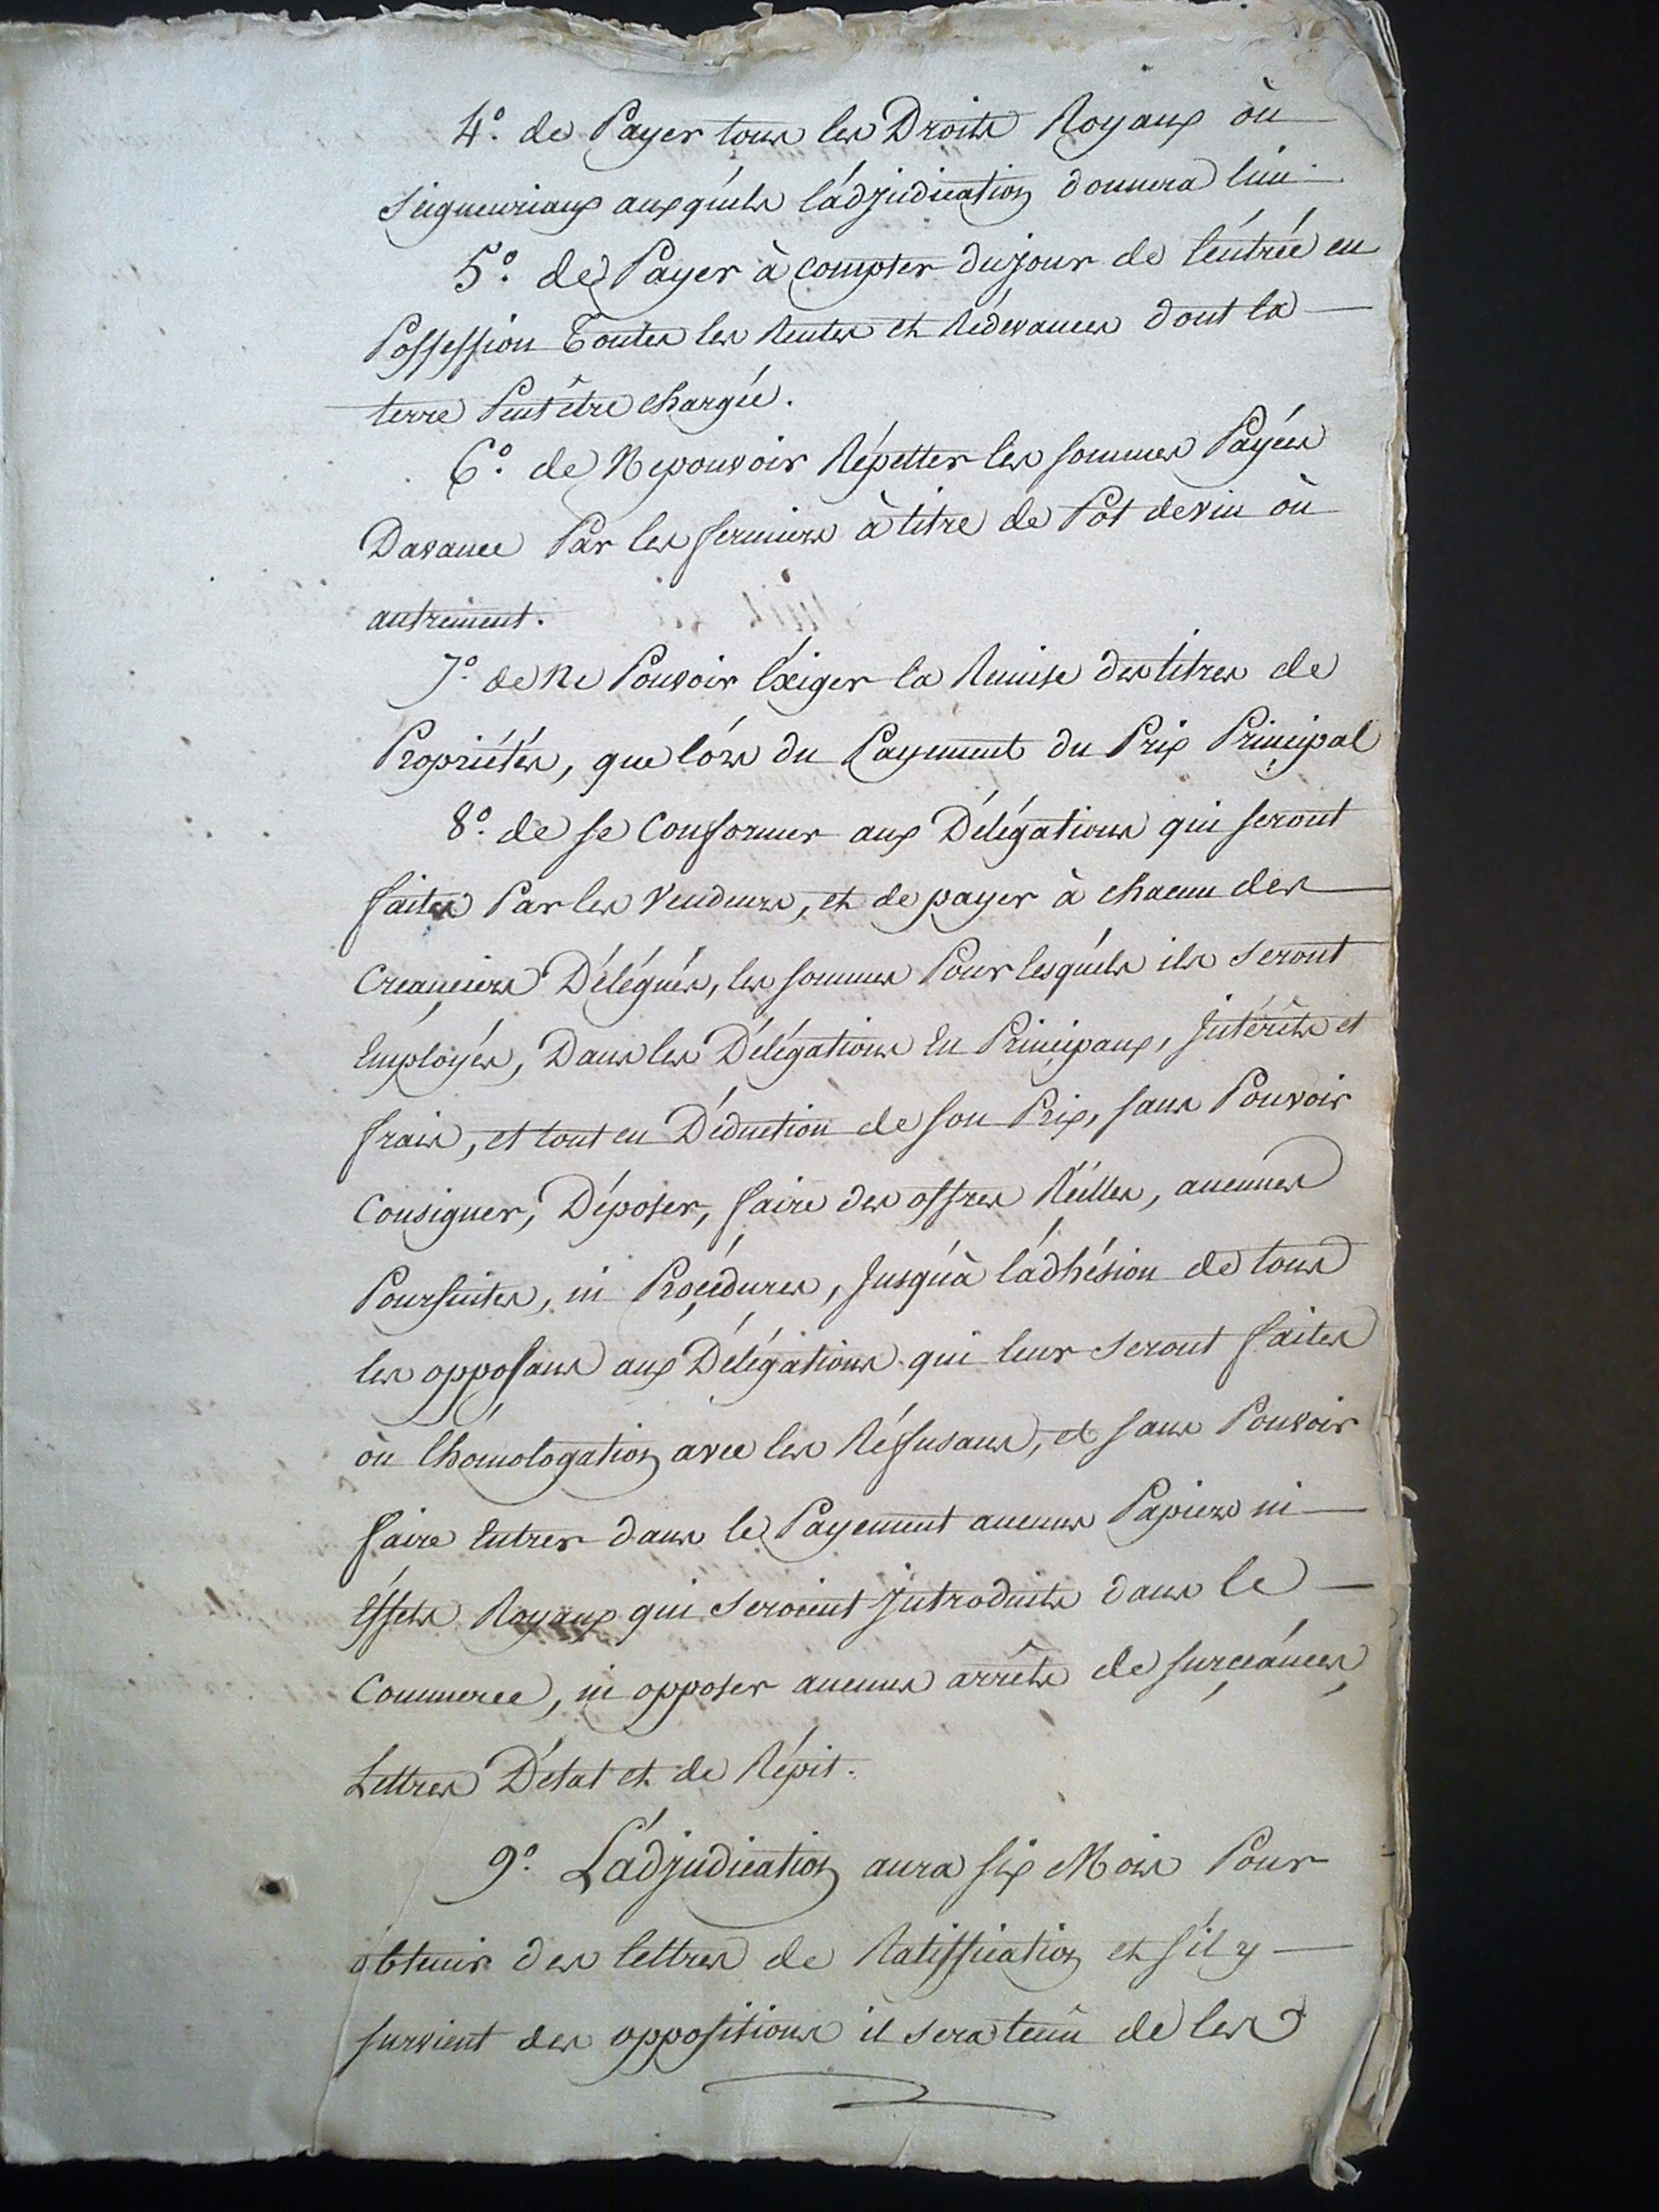 4º. de Payer tous les Droits Royaux où
seigneuriaux auxquéls l'adjudication donnera lieu.
5º. de Payer à compter du jour de l'éntrée en
Possession Toutes les Rentes et Rédevances dont la
terre Peut être chargée.
6º. de Ne pouvoir Répetter les sommes Payées
Davance Par les fermiers à titre de Pot devin où
autrement.
7º. de Ne Pouvoir Éxiger la Remise des titres de
Propriétés, que lórs du Payement du Prix Principal
8º. de se Conformer aux Délégations qui seront
faites Par les Vendeurs, et de payer à chacun des
Creançiers Délégués, les sommes Pour lesquéls ils seront
Employés, Dans les Délégations En Principaux, Intérêts et
frais, et tout en Déduction de son Prix, sans Pouvoir
Consigner, Déposer, faire des offres Réélles, aucunes
Poursuites, ni Proçédures, Jusqu'à l'adhésion de tous
les opposans aux Délégations qui leur seront faites
où l'homologation avec les Réfusans, et sans Pouvoir
faire Entrer dans le Payement aucuns Papiers ni
Éffets Royaux qui seroient Introduits dans le
Commerce, ni opposer aucuns arrêts de surçéánçes,
Lettres D'état et de Répit.
9º. L'adjudication aura six Mois Pour
obtenir des lettres de Ratiffication et s'il y
survient des oppositions il sera tenû de les